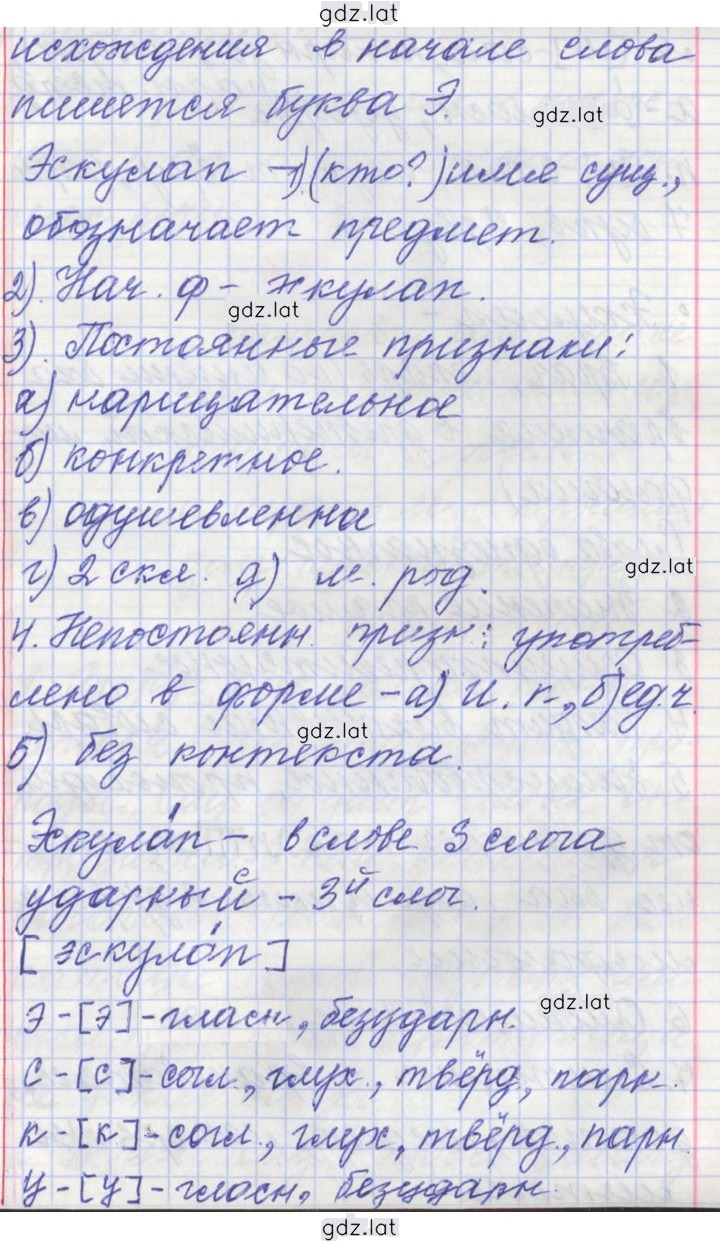 gdz.lat
исхождения в начале слова
пишется буква Э.
gdz.lat
Эскулап – 1) (кто?) имя сущ.,
обозначает предмет.
2) Нач. ф – эскулап.
gdz.lat
3) Постоянные признаки:
а) нарицательное
б) конкретное.
в) одушевленное
г) 2 скл. д) м. род.
gdz.lat
4. Непостоянн. призн: употреб-
лено в форме – а) И. п., б) ед.ч.
gdz.lat
5) без контекста.
Эскула́п – в слове 3 слога
ударный – 3й слог.
[эскула́п]
gdz.lat
э – [э] – гласн, безударн.
с – [с] – согл., глух., твёрд, парн.
к – [к] – согл., глух, твёрд., парн.
у – [у] – гласн, безударн.
gdz.lat